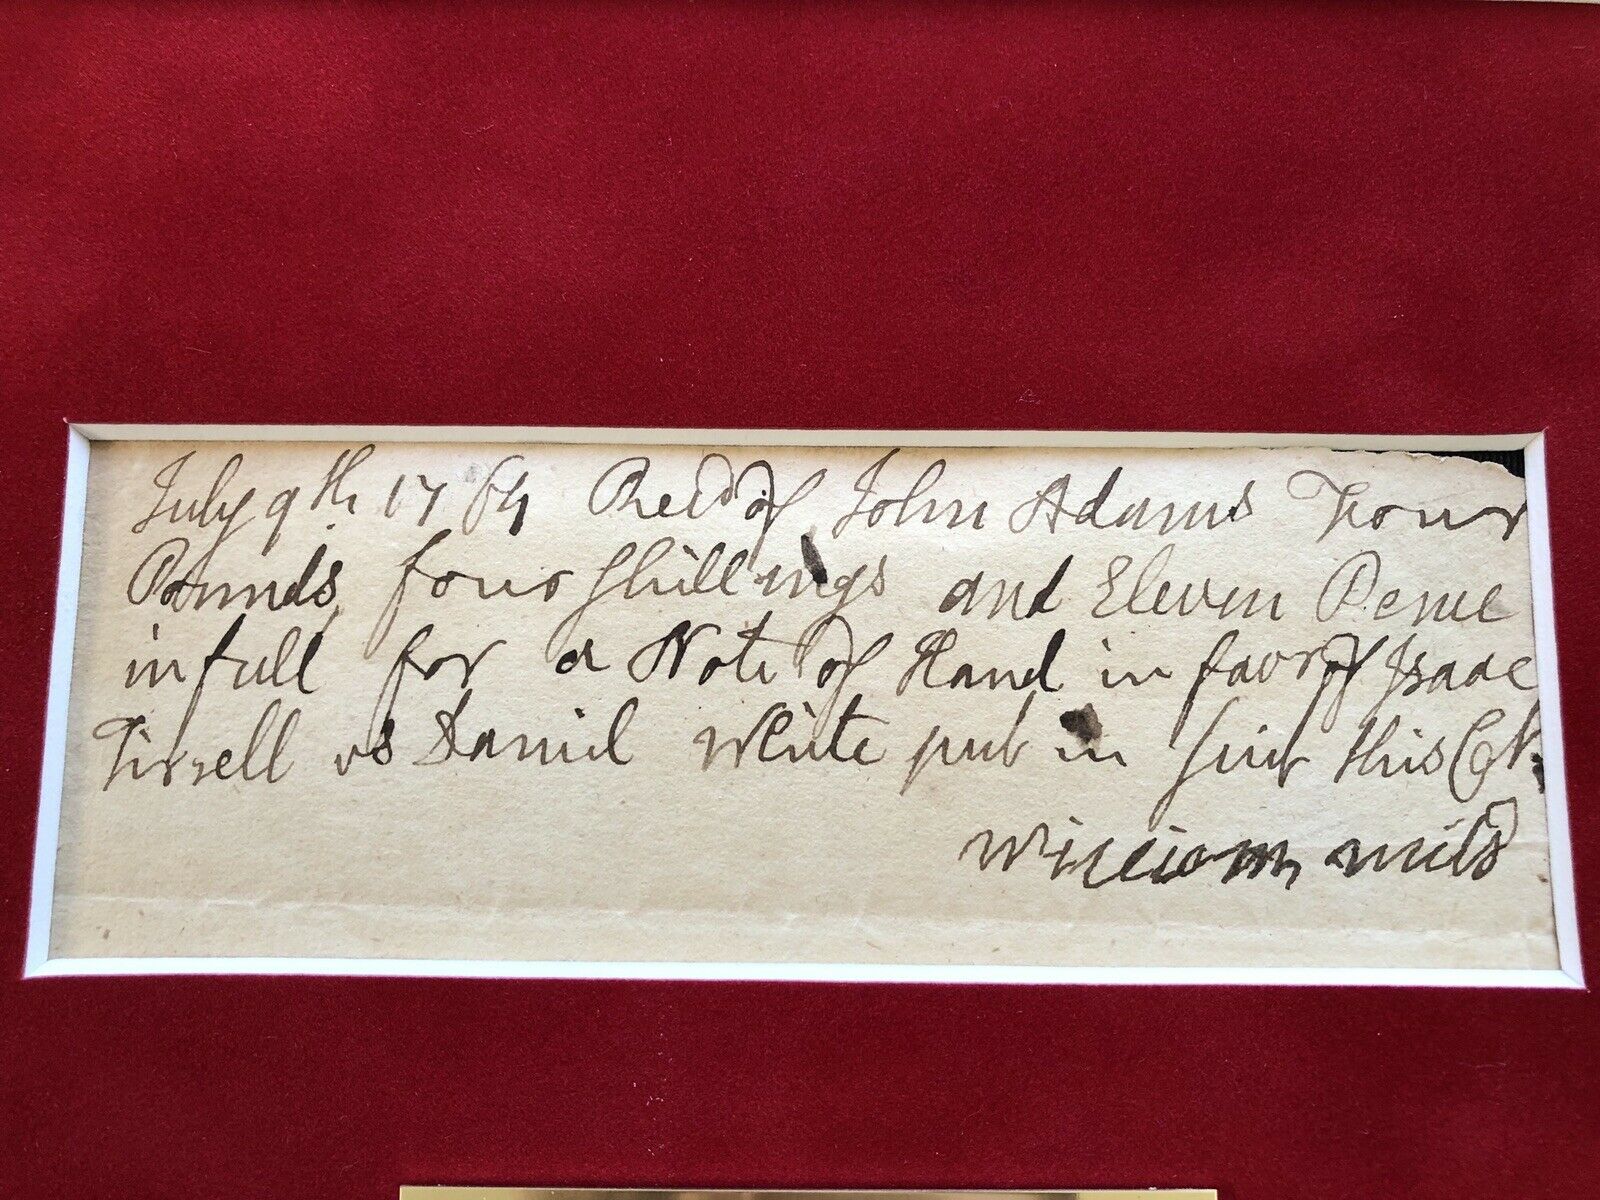 July 9th 1764 Recd of John Adams Four
Pounds four Shillings and Eleven Pence
in full for a Note of Hand in favor of Isaac
Tirrell vs Daniel White put in Suit this Ct.
William